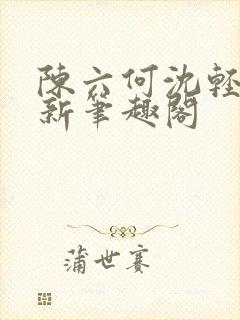 陳六何沈輕
新筆趣閣
蒲世賽